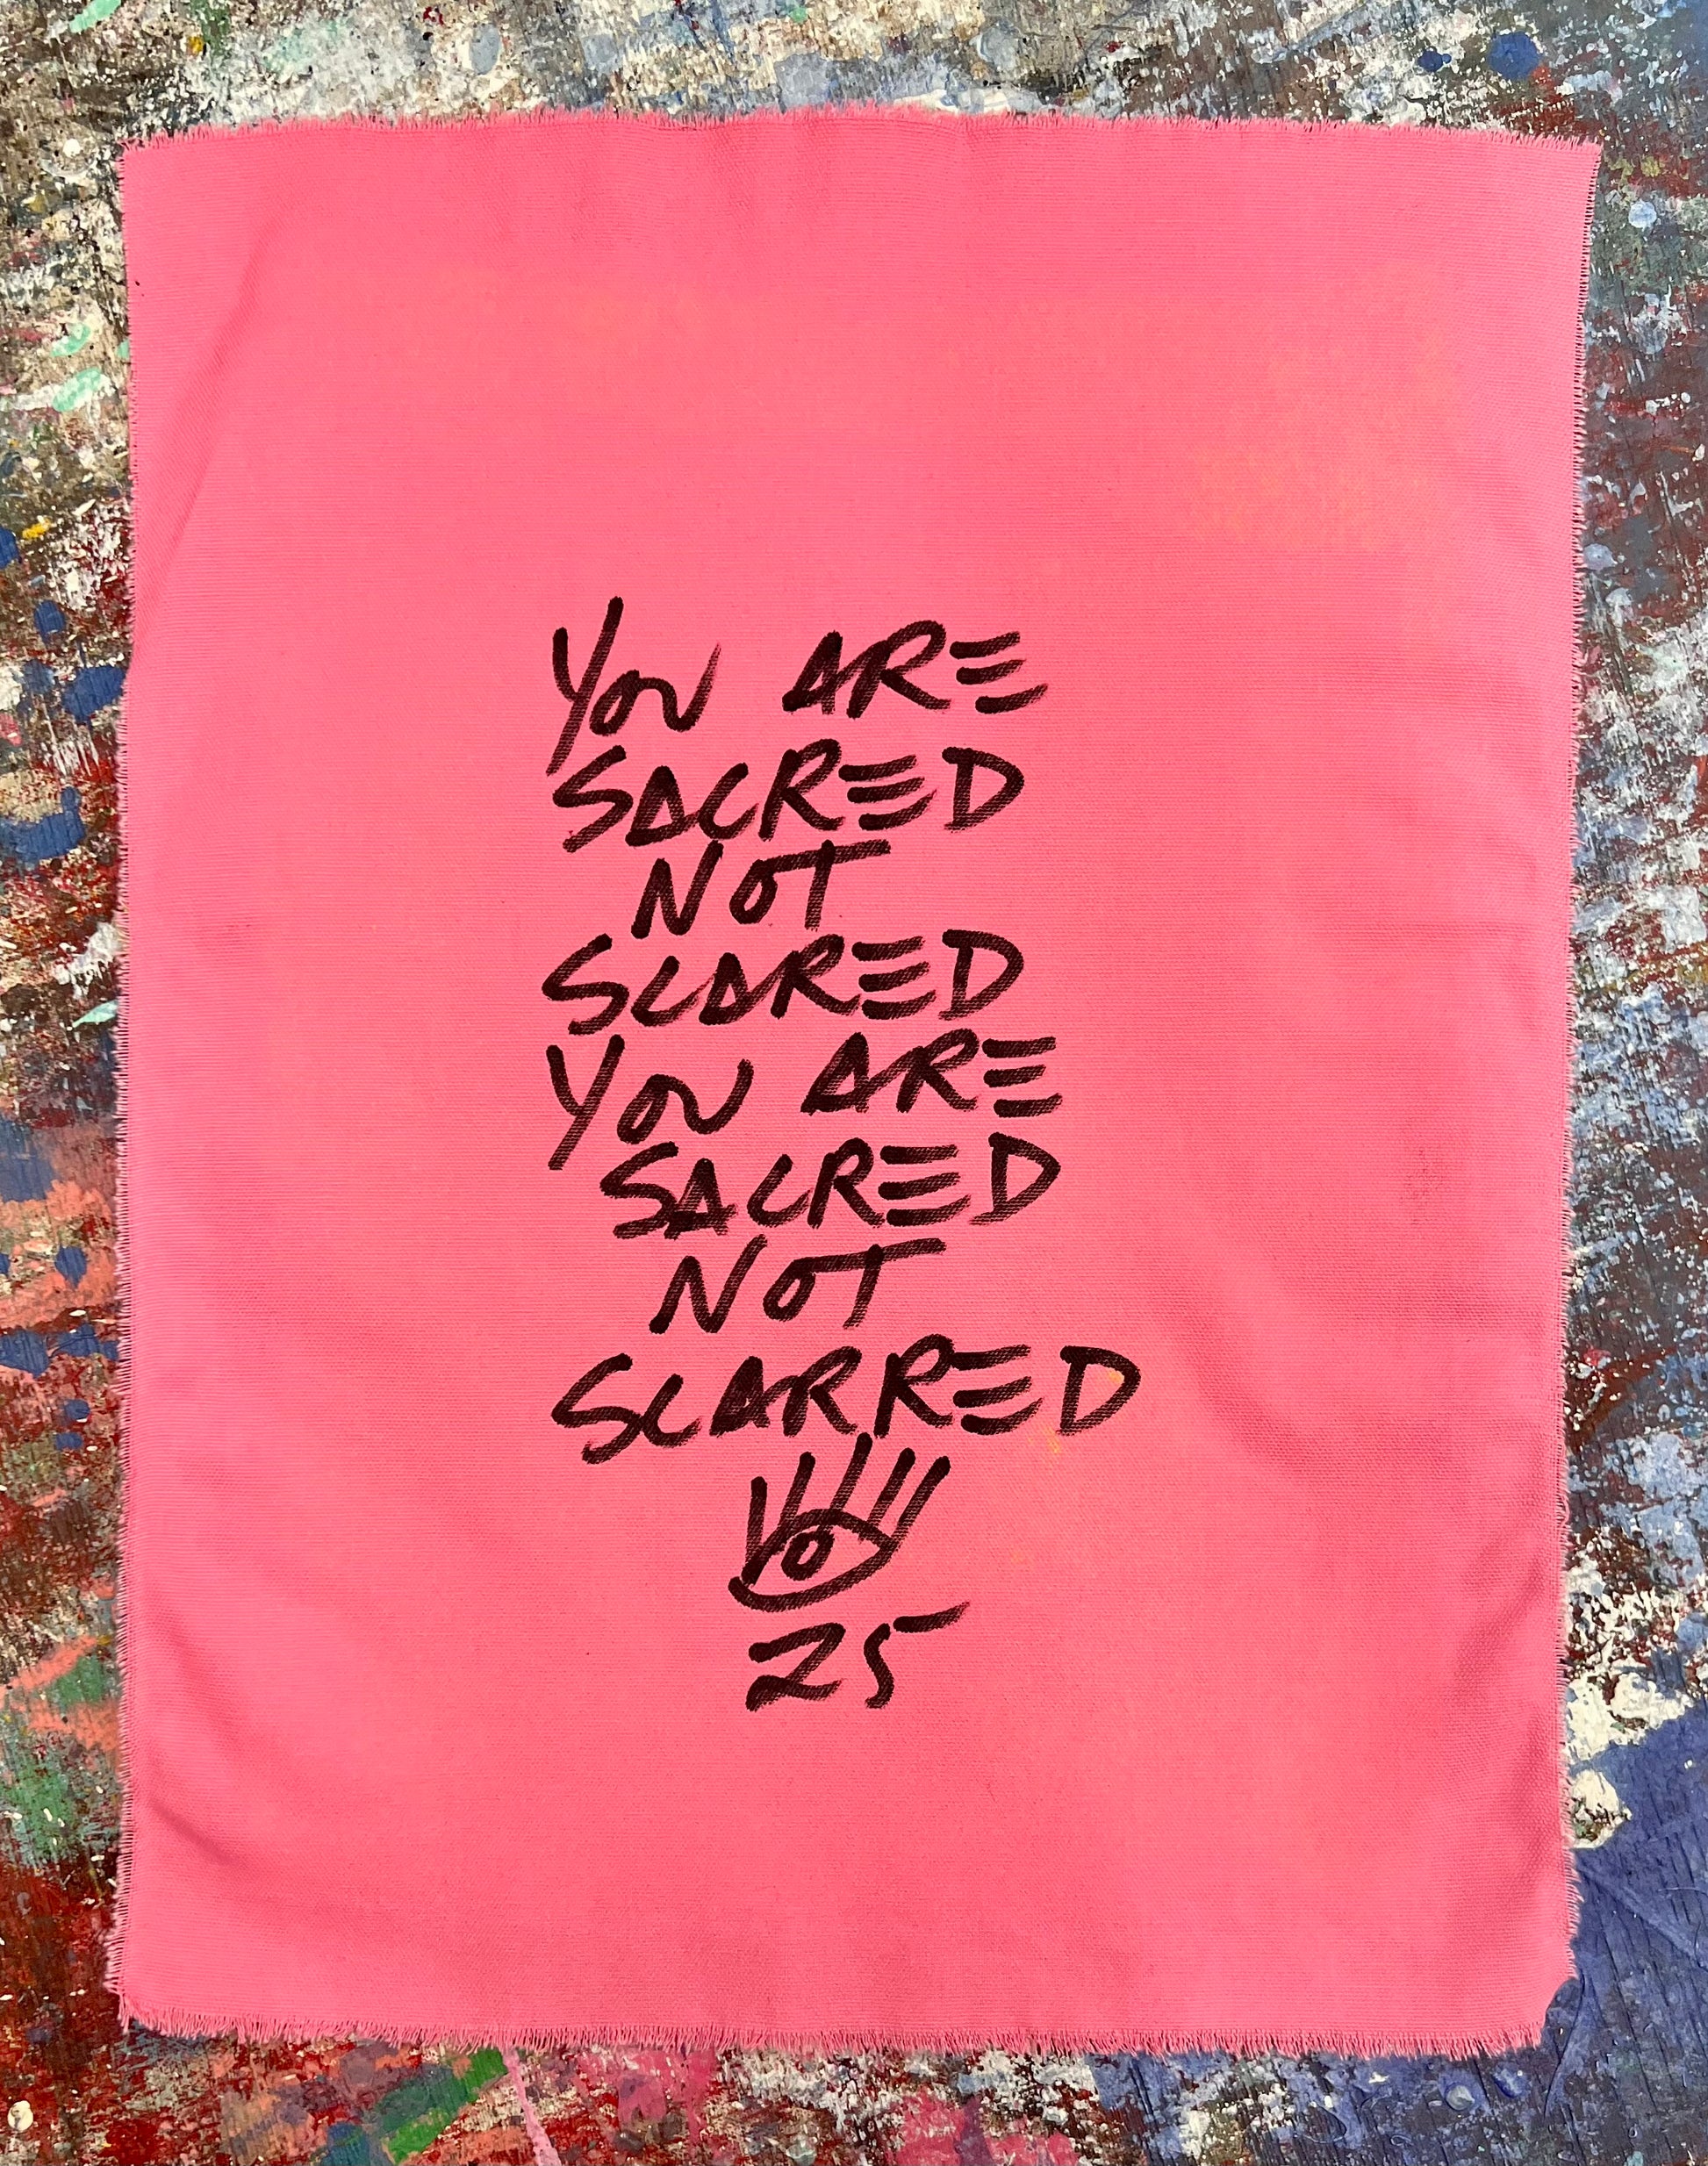 YOU ARE
SACRED
NOT
SCARED
YOU ARE
SACRED
NOT
SCARRED
25